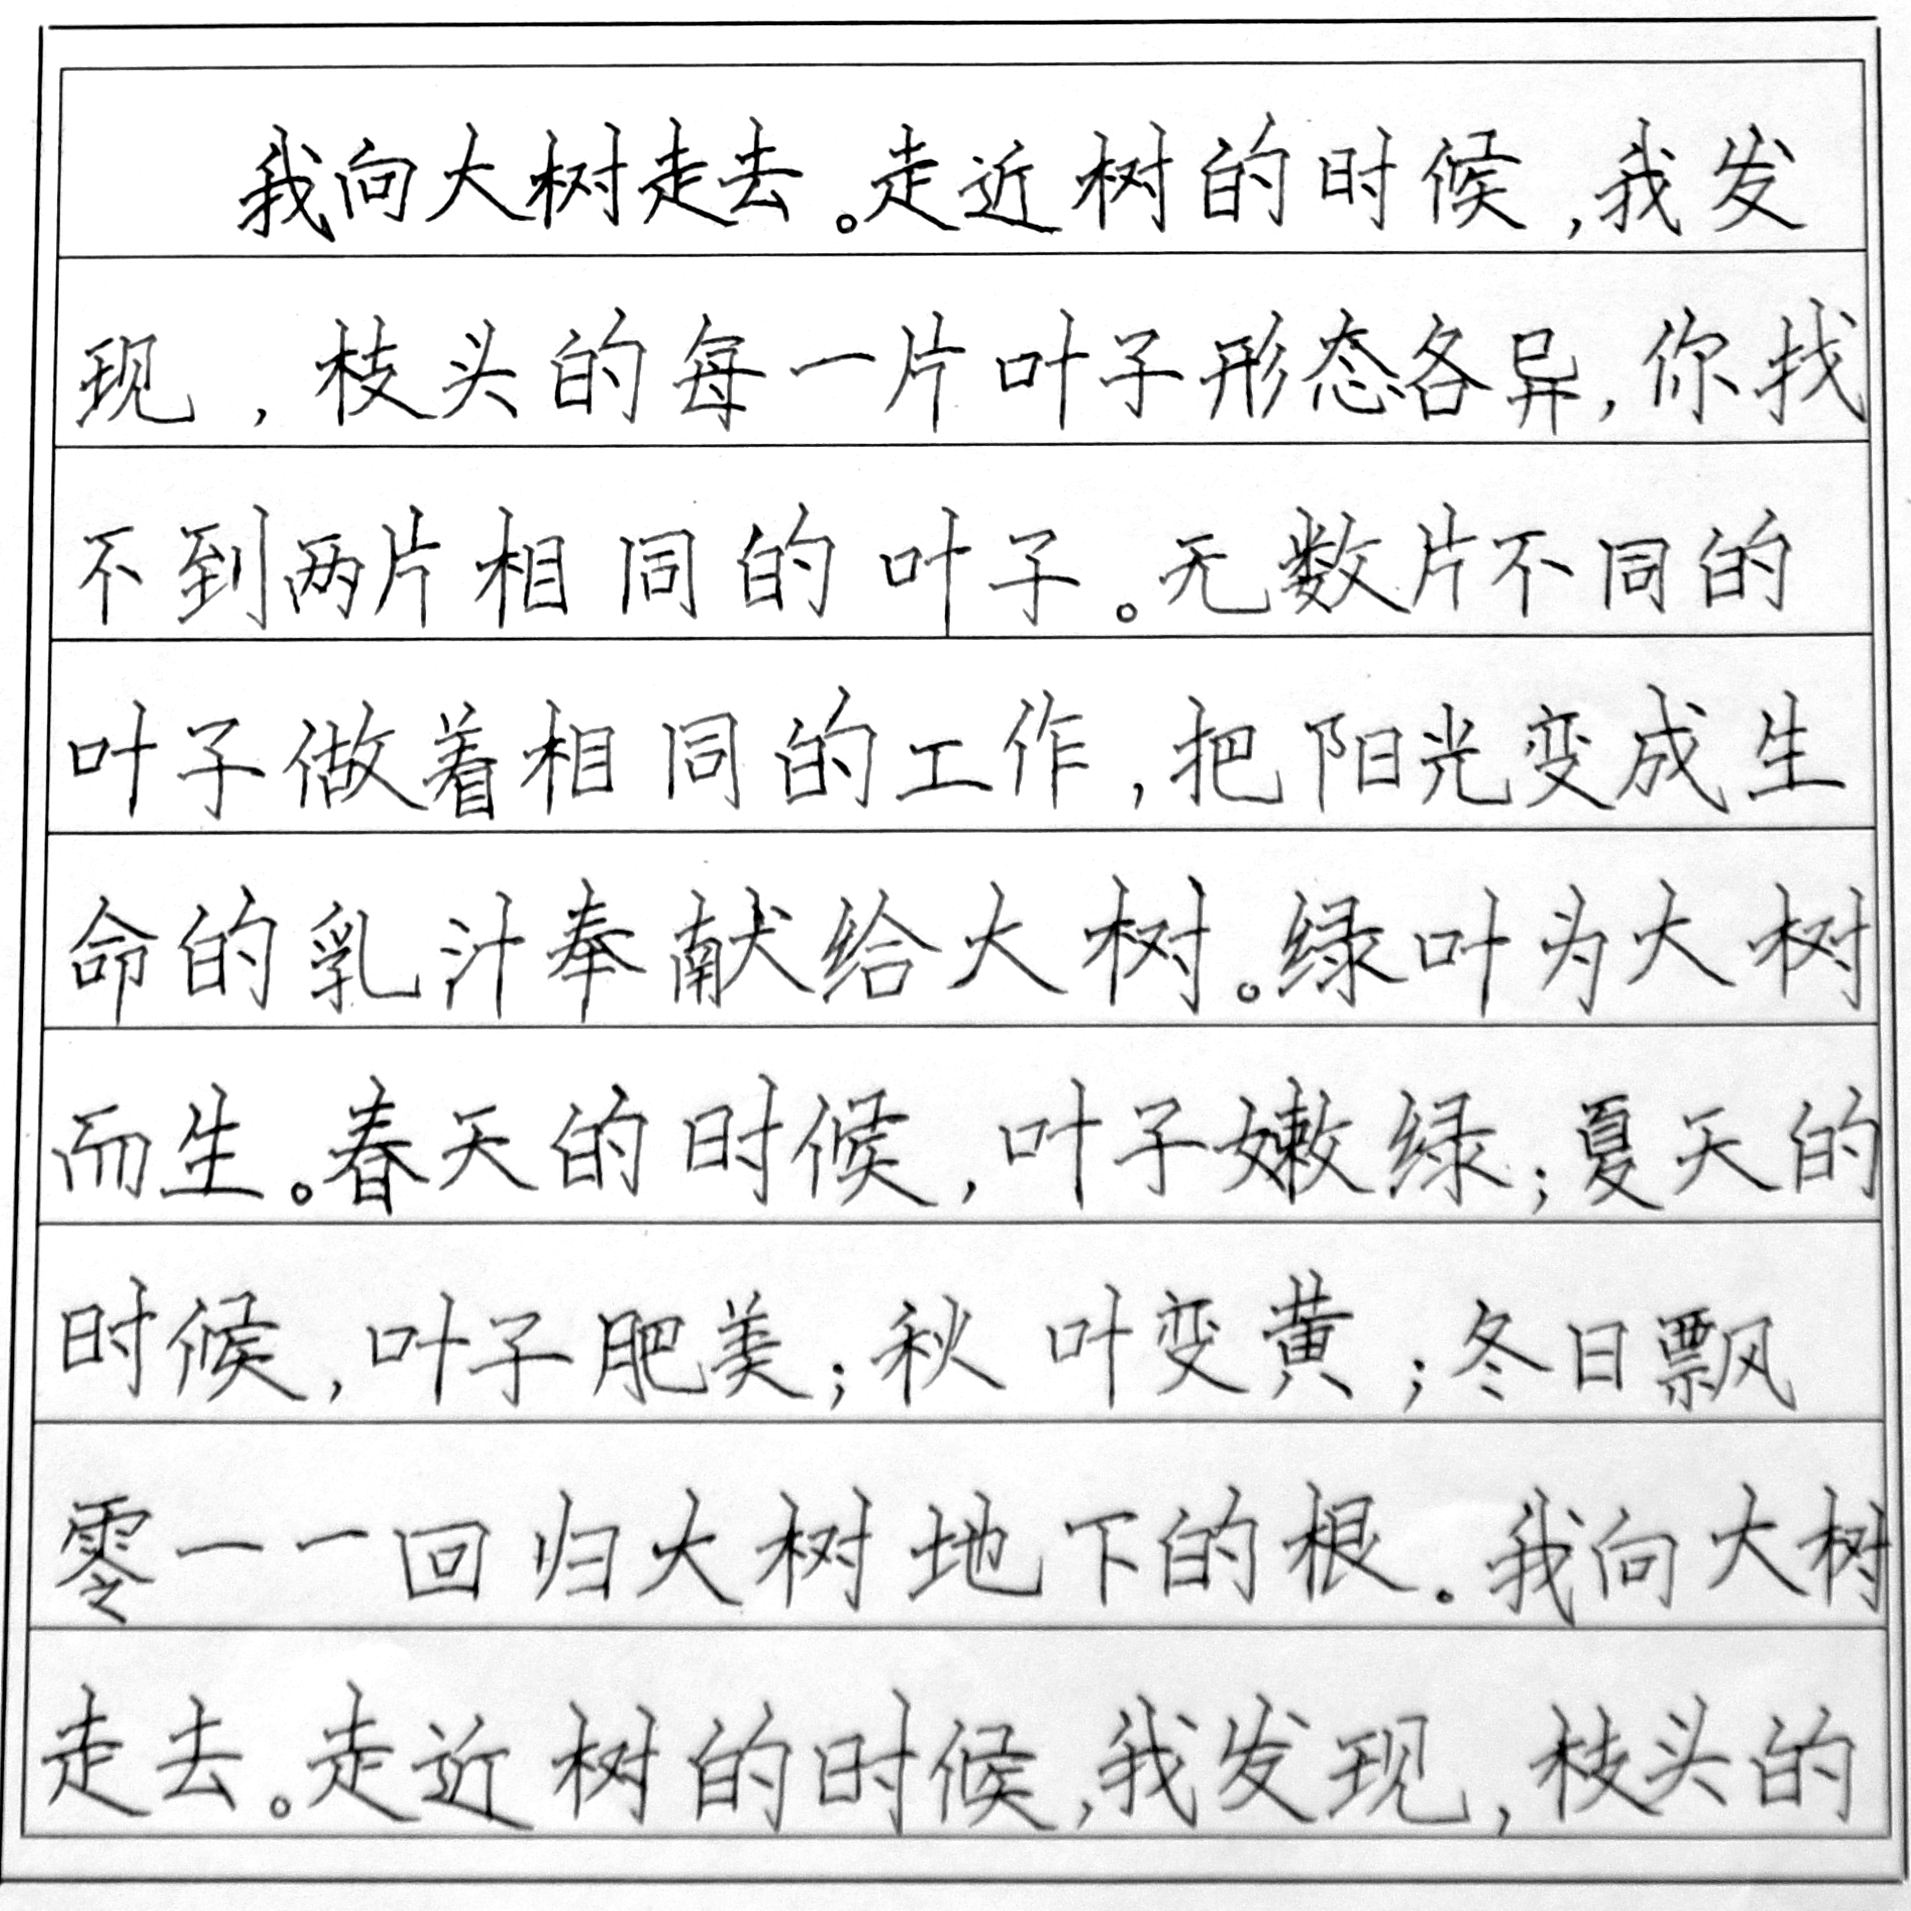 我向大树走去。走近树的时候,我发
现,枝头的每一片叶子形态各异,你找
不到两片相同的叶子。无数片不同的
叶子做着相同的工作,把阳光变成生
命的乳汁奉献给大树。绿叶为大树
而生。春天的时候,叶子嫩绿;夏天的
时候,叶子肥美;秋叶变黄;冬日飘
零一一回归大树地下的根。我向大树
走去。走近树的时候,我发现,枝头的